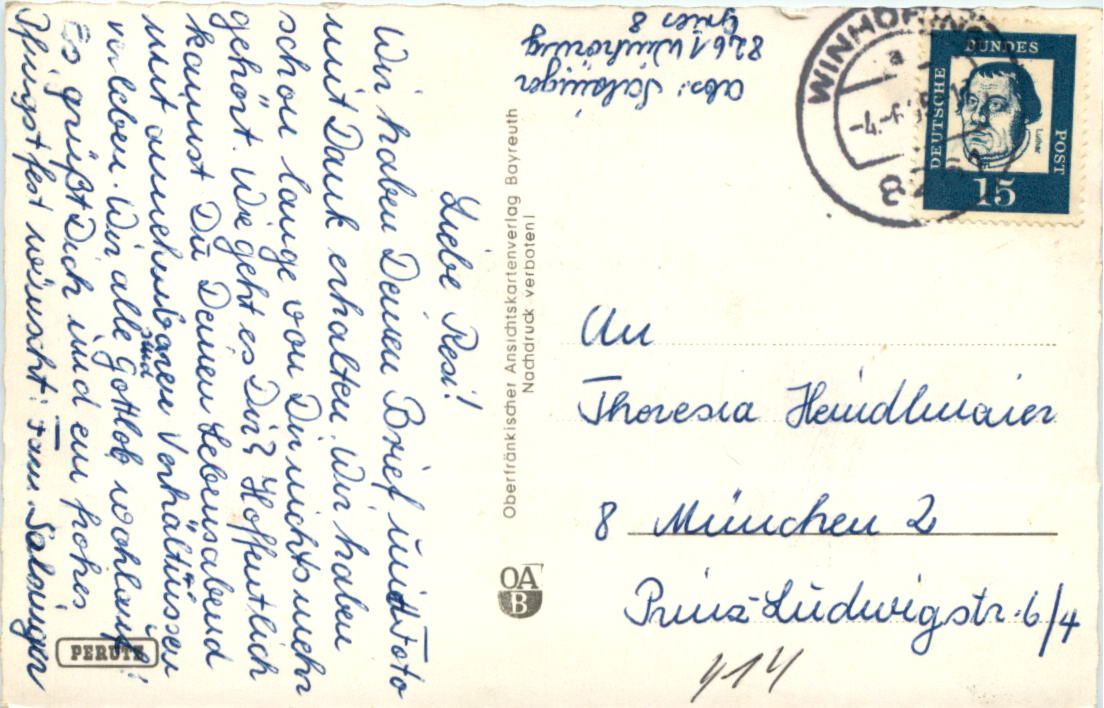 Liebe Resi!
Wir haben Deinen Brief und Foto
mit Dank erhalten. Wir haben
schon lange von Dir nichts mehr
gehört. Wie geht es Dir? Hoffentlich
kannst Du Deinen Lebensabend
mit annehmbaren Verhältnissen
verleben. Wir alle sind Gottlob wohlauf!
Es grüßt Dich und ein frohes
Pfingstfest wünscht: Fam. Salzinger
PERUTZ
Oberfränkischer Ansichtskartenverlag Bayreuth
Nachdruck verboten!
OA
B
Abs: Salzinger
8261 Winhöring
Gries 8
WINHÖRING
a
826
DEUTSCHE
BUNDES
POST
Luther
15
An
Theresia Haindlmaier
8 München 2
Prinz-Ludwigstr. 6/4
414